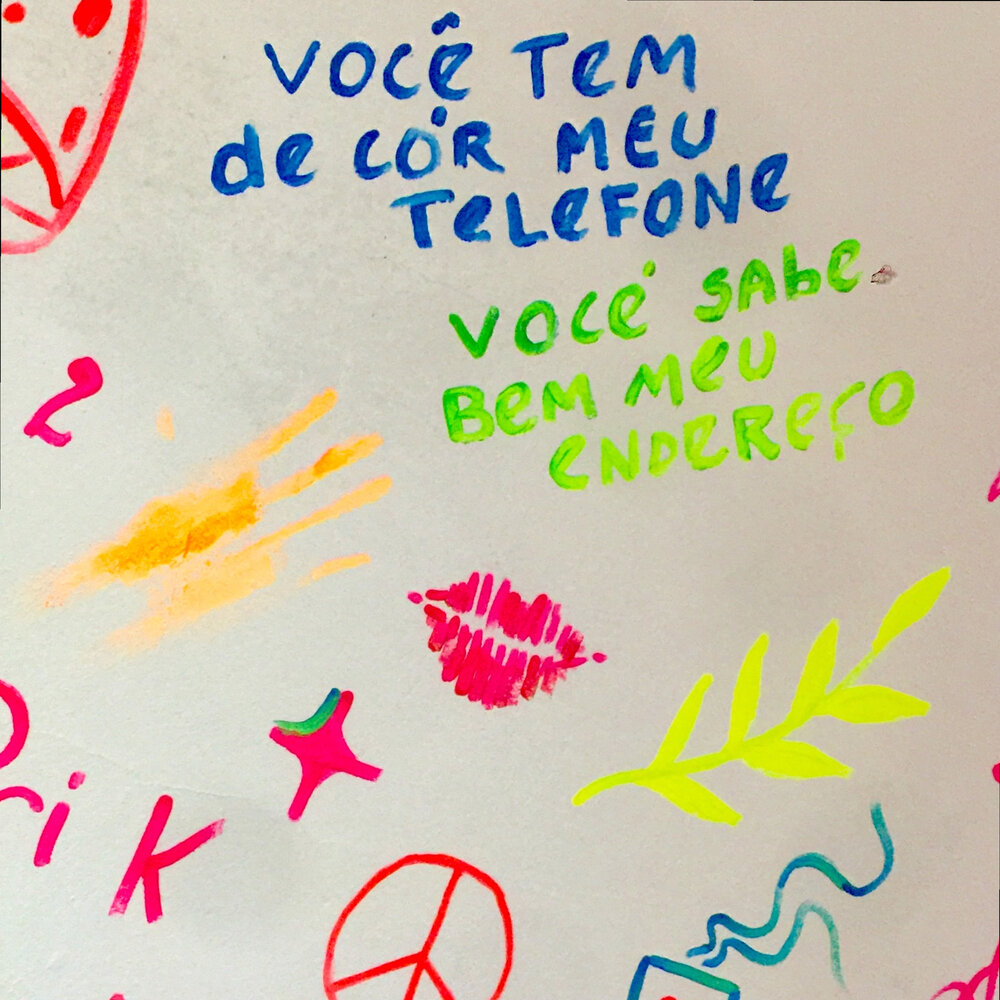 VOCÊ TEM
de CÓR MEU
TELEFONE
VOCÉ SABE
BEM MEU
ENDEREÇO
riK